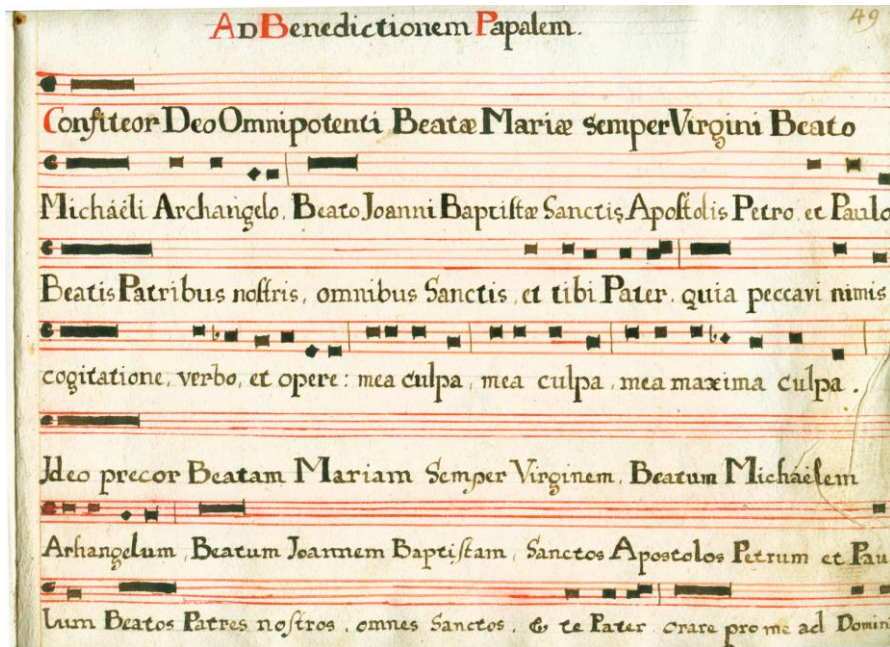 Ad Benedictionem Papalem.
49
Confiteor Deo Omnipotenti Beatæ Mariæ semper Virgini Beato
Michaéli Archangelo, Beato Joanni Baptistæ Sanctis Apostolis Petro, et Paulo
Beatis Patribus nostris, omnibus Sanctis, et tibi Pater, quia peccavi nimis
cogitatione, verbo, et opere: mea culpa, mea culpa, mea maxima culpa.
Ideo precor Beatam Mariam Semper Virginem, Beatum Michaélem
Arhangelum, Beatum Joannem Baptistam, Sanctos Apostolos Petrum et Pau
lum Beatos Patres nostros, omnes Sanctos, & te Pater orare pro me ad Domin